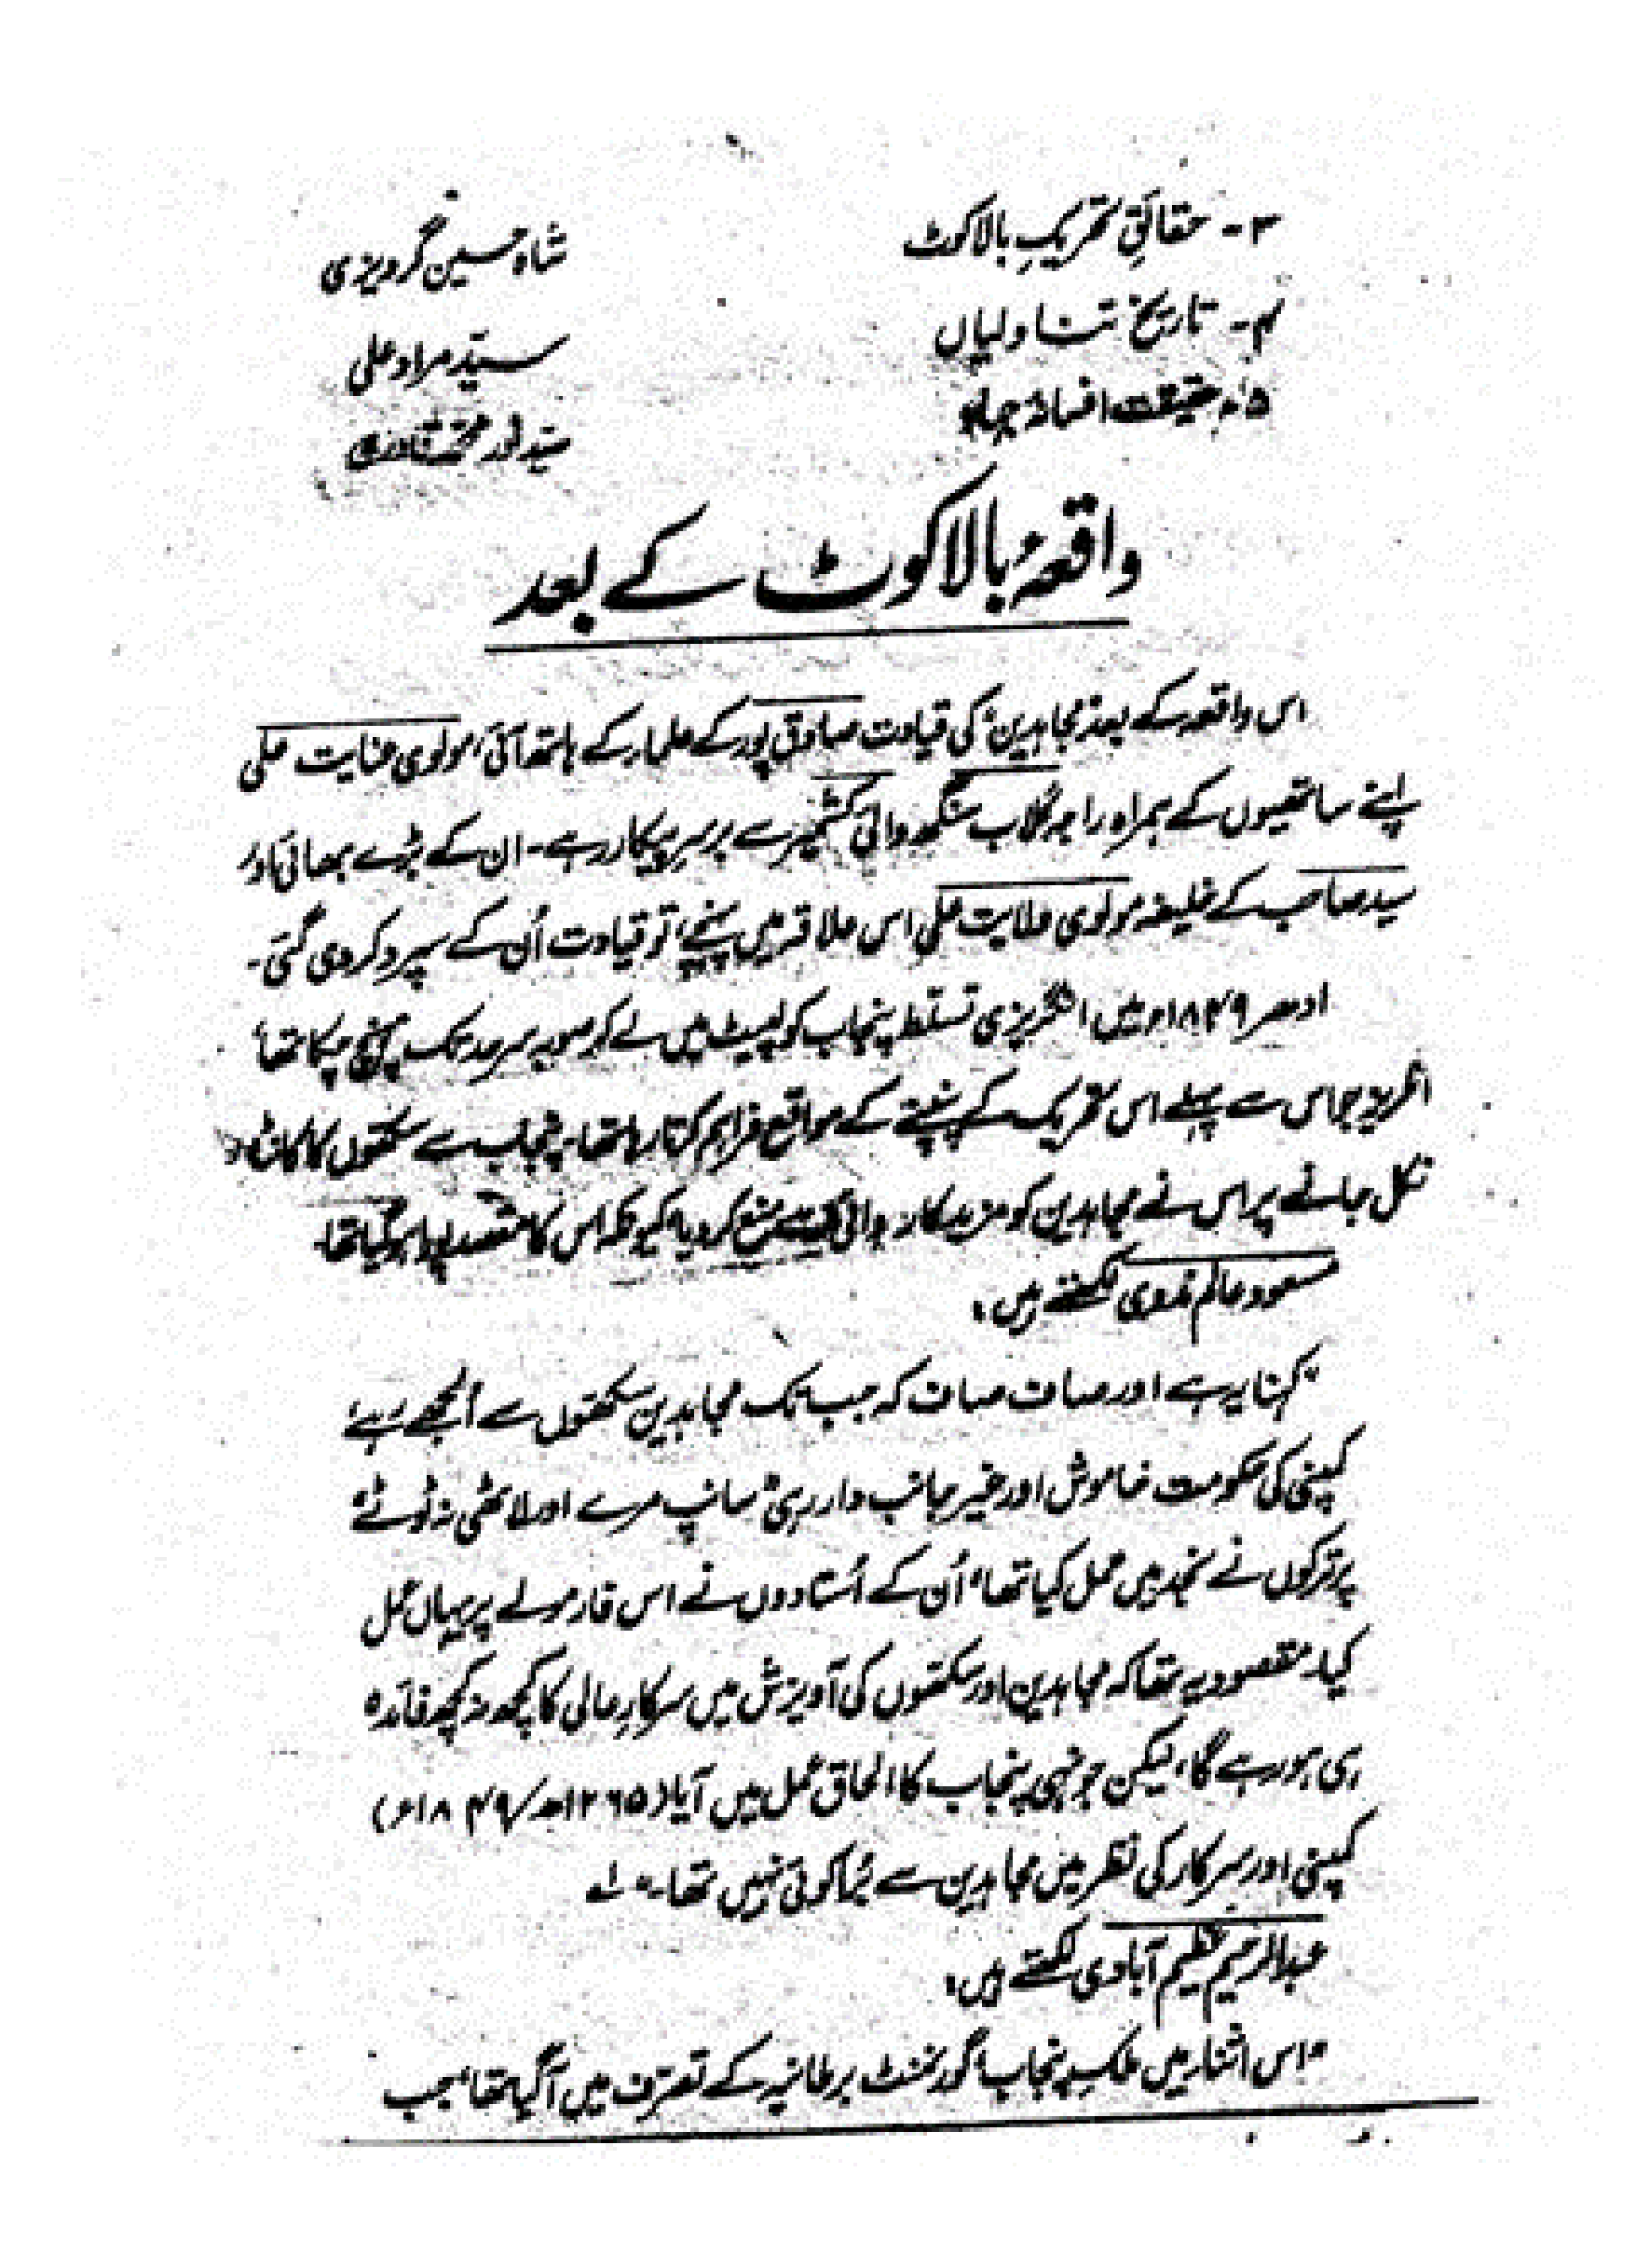 ۳۔ حقائقِ تحریکِ بالاکوٹ شاہ حسین گردیزی
۴۔ تاریخ تناولیاں سیّد مراد علی
۵۔ حقیقت افسانۂ جہاد سیّد نور محمّد قادری
واقعۂ بالاکوٹ کے بعد
اس واقعہ کے بعد مجاہدین کی قیادت صادق پور کے علماء کے ہاتھ آئی، مولوی عنایت علی
اپنے ساتھیوں کے ہمراہ راجہ گلاب سنگھ والئ کشمیر سے برسرِ پیکار رہے۔ ان کے بڑے بھائی اور
سید صاحب کے خلیفہ مولوی ولایت علی اس علاقہ میں پہنچے، تو قیادت اُن کے سپرد کر دی گئی۔
ادھر ۱۸۴۹ء میں انگریزی تسلّط پنجاب کو لپیٹ میں لے کر صوبہ سرحد تک پہنچ چکا تھا،
انگریز جو اس سے پہلے اس تحریک کے پنپنے کے مواقع فراہم کرتا رہا تھا۔ پنجاب سے سکھوں کا کانٹا
نکل جانے پر اس نے مجاہدین کو مزید کارروائی سے منع کر دیا، کیونکہ اس کا مقصد پورا ہو گیا تھا۔
مسعود عالم ندوی لکھتے ہیں:
"کہنا یہ ہے اور صاف صاف کہ جب تک مجاہدین سکھوں سے اُلجھے رہے،
کمپنی کی حکومت خاموش اور غیر جانب دار رہی "سانپ مرے اور لاٹھی نہ ٹوٹے"
پر ترکوں نے نجد میں عمل کیا تھا، اُن کے اُستادوں نے اس فارمولے پر یہاں عمل
کیا۔ مقصود یہ تھا کہ مجاہدین اور سکھوں کی آویزش میں سرکارِ عالی کا کچھ نہ کچھ فائدہ
ہی ہو رہے گا، لیکن جونہی پنجاب کا الحاق عمل میں آیا (۱۲۶۵ھ/۱۸۴۹ء)
کمپنی اور سرکار کی نظر میں مجاہدین سے بُرا کوئی نہیں تھا۔" ۱ے
عبدالرحیم عظیم آبادی لکھتے ہیں:
"اس اثناء میں ملکِ پنجاب گورنمنٹ برطانیہ کے تصرّف میں آ گیا تھا، جب